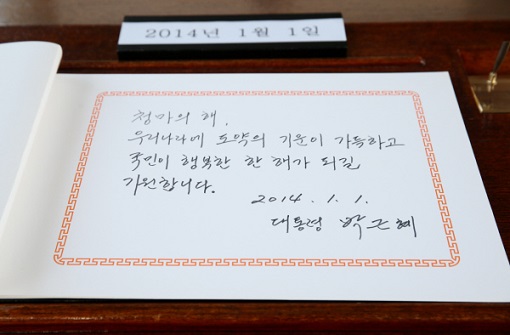 2014년 1월 1일
청마의 해,
우리나라에 도약의 기운이 가득하고
국민이 행복한 한 해가 되길
기원합니다.
2014. 1. 1.
대통령 박근혜